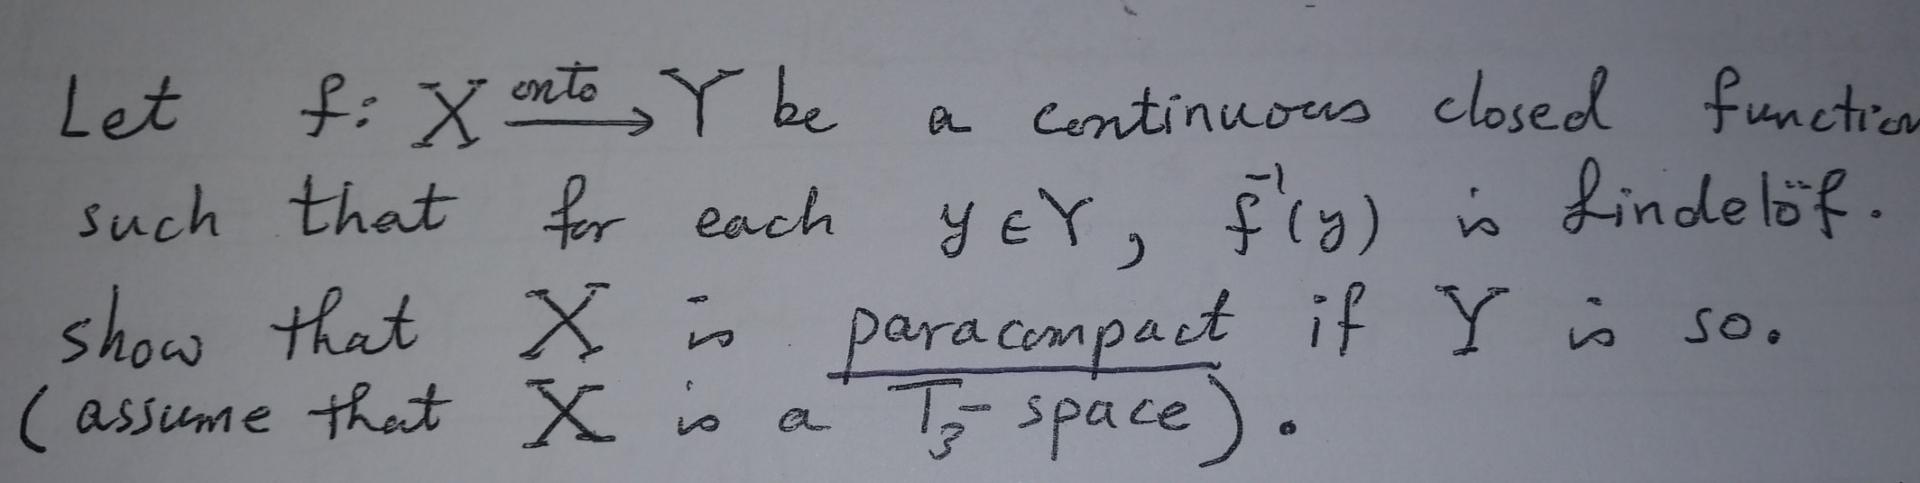 Let f: X onto→ Y be a continuous closed function
such that for each y∈Y, f⁻¹(y) is Lindelöf.
show that X is paracompact if Y is so.
(assume that X is a T₃-space).